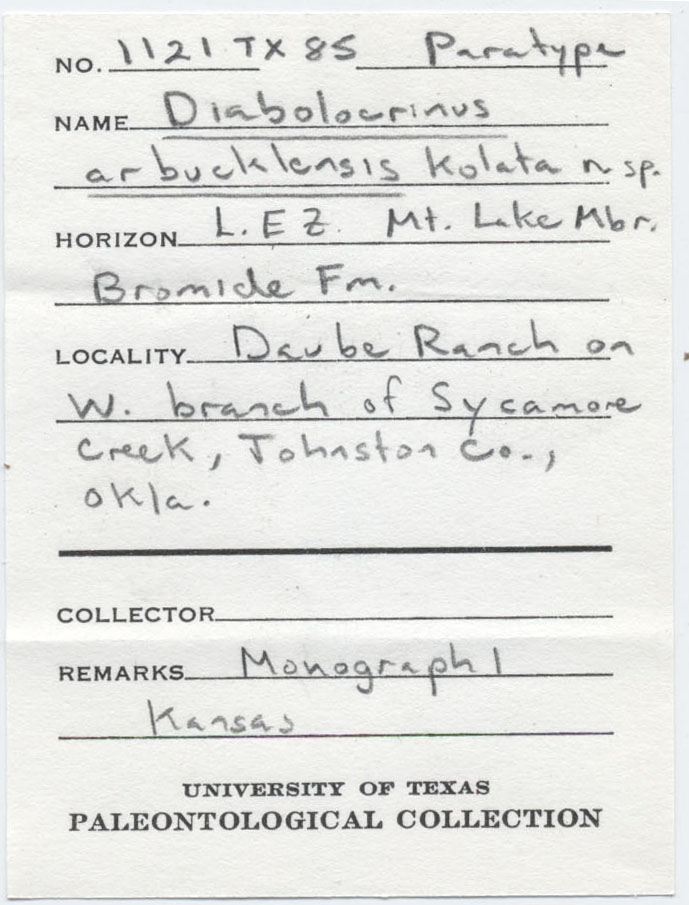 NO. 1121 TX 85 Paratype
NAME Diabolocrinus
arbucklensis Kolata n sp.
HORIZON L. E Z. Mt. Lake Mbr.
Bromide Fm.
LOCALITY Daube Ranch on
W. branch of Sycamore
Creek, Johnston Co.,
Okla.
COLLECTOR
REMARKS Monograph 1
Kansas
UNIVERSITY OF TEXAS
PALEONTOLOGICAL COLLECTION